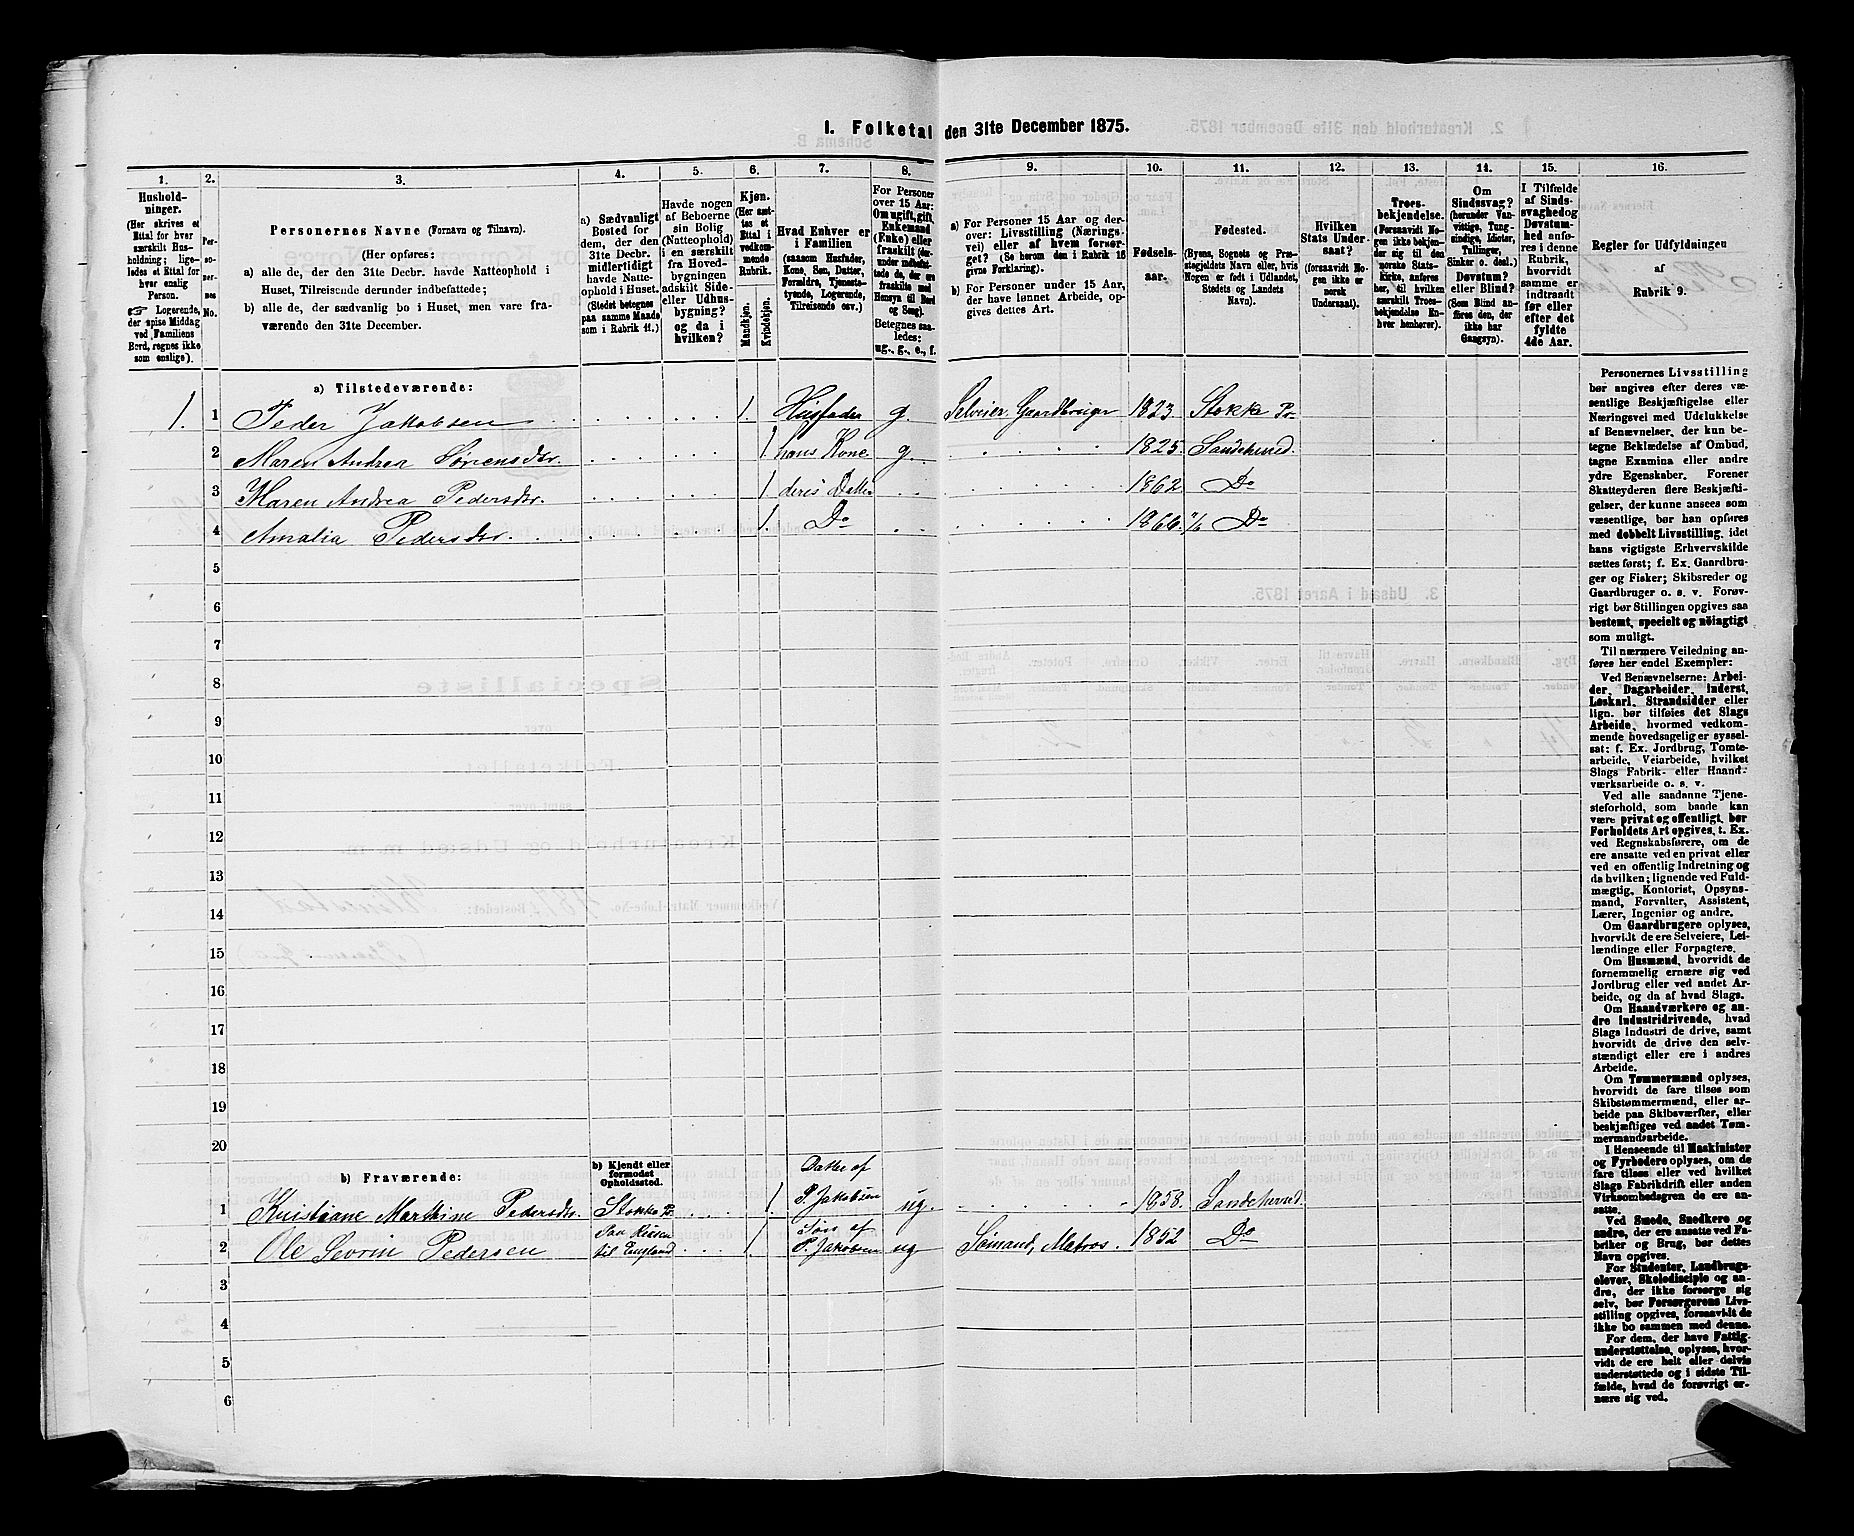 1. Folketal den 31te December 1875.
1. 2. 3. 4. 5. 6. 7. 8. 9. 10. 11. 12. 13. 14. 15. 16.
Hushold-
ninger.
(Her skrives et
Ettal for hver
særskilt Hus-
holdning; lige-
ledes et Ettal for
hver enslig
Person.
☞ Logerende,
der spise Middag
ved Familiens
Bord, regnes ikke
som enslige).
Per-
so-
ner-
nes
No.
Personernes Navne (Fornavn og Tilnavn).
(Her opføres:
a) alle de, der den 31te Decbr. havde Natteophold i
Huset, Tilreisende derunder indbefattede;
b) alle de, der sædvanlig bo i Huset, men vare fra-
værende den 31te December.
a) Sædvanligt
Bosted for
dem, der den
31te Decbr.
midlertidigt
havde Natte-
ophold i Huset.
(Stedet betegnes
paa samme Maade
som i Rubrik 11.)
Havde nogen
af Beboerne
sin Bolig
(Natteophold)
i en særskilt
fra Hoved-
bygningen
adskilt Side-
eller Udhus-
bygning?
og da i
hvilken?
Kjøn.
(Her sæt-
tes et
Ettal i
vedkom-
mende
Rubrik.
Mandkjøn.
Kvindekjøn.
Hvad Enhver er
i Familien
(saasom Husfader,
Kone, Søn, Datter,
Forældre, Tjeneste-
tyende, Logerende,
Tilreisende osv.)
For Personer
over 15 Aar:
Om ugift, gift,
Enkemand
(Enke) eller
fraskilt
Betegnes saa-
ledes:
ug., g., e., f.
a) For Personer 15 Aar og der-
over: Livsstilling (Nærings-
vei) eller af hvem forsør-
get? (Se herom den i Rubrik 16
givne Forklaring).
b) For Personer under 15 Aar,
der have lønnet Arbeide, op-
gives dettes Art.
Fødsels-
aar.
Fødested.
(Byens, Sognets og Præ-
stegjeldets Navn eller, hvis
Nogen er født i Udlandet,
Stedets og Landets
Navn).
Hvilken
Stats Under-
saat?
(forsaavidt No-
gen ikke er
norsk
Undersaat).
Troes-
bekjendelse.
(Forsaavidt No-
gen ikke bekjen-
der sig til den
norske Stats-
Kirke, anføres
her, til hvilken
særskilt Troes-
bekjendelse En-
hver henhører).
Om
Sindssvag?
(herunder Van-
vittige, Tung-
sindige, Idioter,
Tullinger,
Sinker o. desl.)
Døvstum?
eller Blind?
(Som Blind an-
føres den, der
ikke har
Gangsyn).
I Tilfælde
af Sinds-
svaghed og
Døvstum-
hed anfø-
res i denne
Rubrik,
hvorvidt
samme er
indtraadt
før eller
efter det
fyldte
4de Aar.
Regler for Udfyldningen
af
Rubrik 9.
a) Tilstedeværende:
1. 1 Peder Jakobsen 1. Husfader g. Selveier Gaardbruger 1823. Stokke Pr
2 Maren Andrea Sørensdtr. 1 hans Kone g. 1825. Sandeherred.
3 Maren Andrea Pedersdtr. 1 deres Datter 1862. Do
4 Amalia Pedersdtr. 1. Do 1866. Do
5
6
7
8
9
10
11
12
13
14
15
16
17
18
19
20
b) Fraværende:
b) Kjendt eller
formodet
Opholdssted.
1 Kristiane Marthine Pedersdtr. Stokke Pr 1. Datter af
P. Jakobsen ug. 1858. Sandeherred.
2 Ole Severin Pedersen Paa Reisen
til England 1 Søn af
P. Jakobsen ug Sømand, Matros. 1852 Do
3
4
5
6
Personernes Livsstilling
bør angives efter deres væ-
sentlige Beskjæftigelse eller
Næringsvei med Udelukkelse
af Benævnelser, der kun be-
tegne Beklædelse af Ombud,
tagne Examina eller andre
ydre Egenskaber. Forener
Skatteyderen flere Beskjæfti-
gelser, der kunne ansees som
væsentlige, bør han opføres
med dobbelt Livsstilling, idet
hans vigtigste Erhvervskilde
sættes først; f. Ex. Gaardbru-
ger og Fisker; Skibsreder og
Gaardbruger o. s. v. Forøv-
rigt bør Stillingen opgives saa
bestemt, specielt og nöiagtigt
som muligt.
Til nærmere Veiledning an-
føres her endel Exempler:
Ved Benævnelserne: Arbei-
der, Dagarbeider, Inderst,
Løskarl, Strandsidder eller
lign. bør tilføies det Slags
Arbeide, hvormed vedkom-
mende hovedsagelig er syssel-
sat: f. Ex. Jordbrug, Tomte-
arbeide, Veiarbeide, hvilket
Slags Fabrik- eller Haand-
værksarbeide o. s. v.
Ved alle saadanne Tjene-
steforhold, som baade kan
være privat og offentligt, bør
Forholdets Art opgives, t. Ex.
ved Regnskabsførere, om de
ere ansatte ved en privat eller
ved en offentlig Indretning og
da hvilken; lignende ved Fuld-
mægtig, Kontorist, Opsyns-
mand, Forvalter, Assistent,
Lærer, Ingeniør og andre.
Om Gaardbrugere oplyses,
hvorvidt de ere Selveiere, Lei-
lændinge eller Forpagtere.
Om Husmænd, hvorvidt de
fornemmelig ernære sig ved
Jordbrug eller ved andet Ar-
beide, og da af hvad Slags.
Om Haandværkere og an-
dre Industridrivende, hvad
Slags Industri de drive, samt
hvorvidt de drive den selv-
stændigt eller ere i andres
Arbeide.
Om Tømmermænd oplyses,
hvorvidt de fare tilsøs som
Skibstømmermænd, eller ar-
beide paa Skibsværfter, eller
beskjæftiges ved andet Tøm-
mermandsarbeide.
I Henseende til Maskinister
og Fyrbødere oplyses, om de
fare tilsøs eller ved hvilket
Slags Fabrikdrift eller anden
Virksomhedsgren de ere an-
satte.
Ved Smede, Snedkere og
andre, der ere ansatte ved Fa-
briker og Brug, bør dettes
Navn opgives.
For Studenter, Landbrugs-
elever, Skoledisciple og an-
dre, der ikke forsørge sig
selv, bør Forsørgerens Livs-
stilling opgives, forsaavidt de
ikke bo sammen med denne.
For dem, der have Fattig-
understøttelse, oplyses, hvor-
vidt de ere helt eller delvis
understøttede og i sidste Til-
fælde, hvad de forøvrigt er-
nære sig ved.